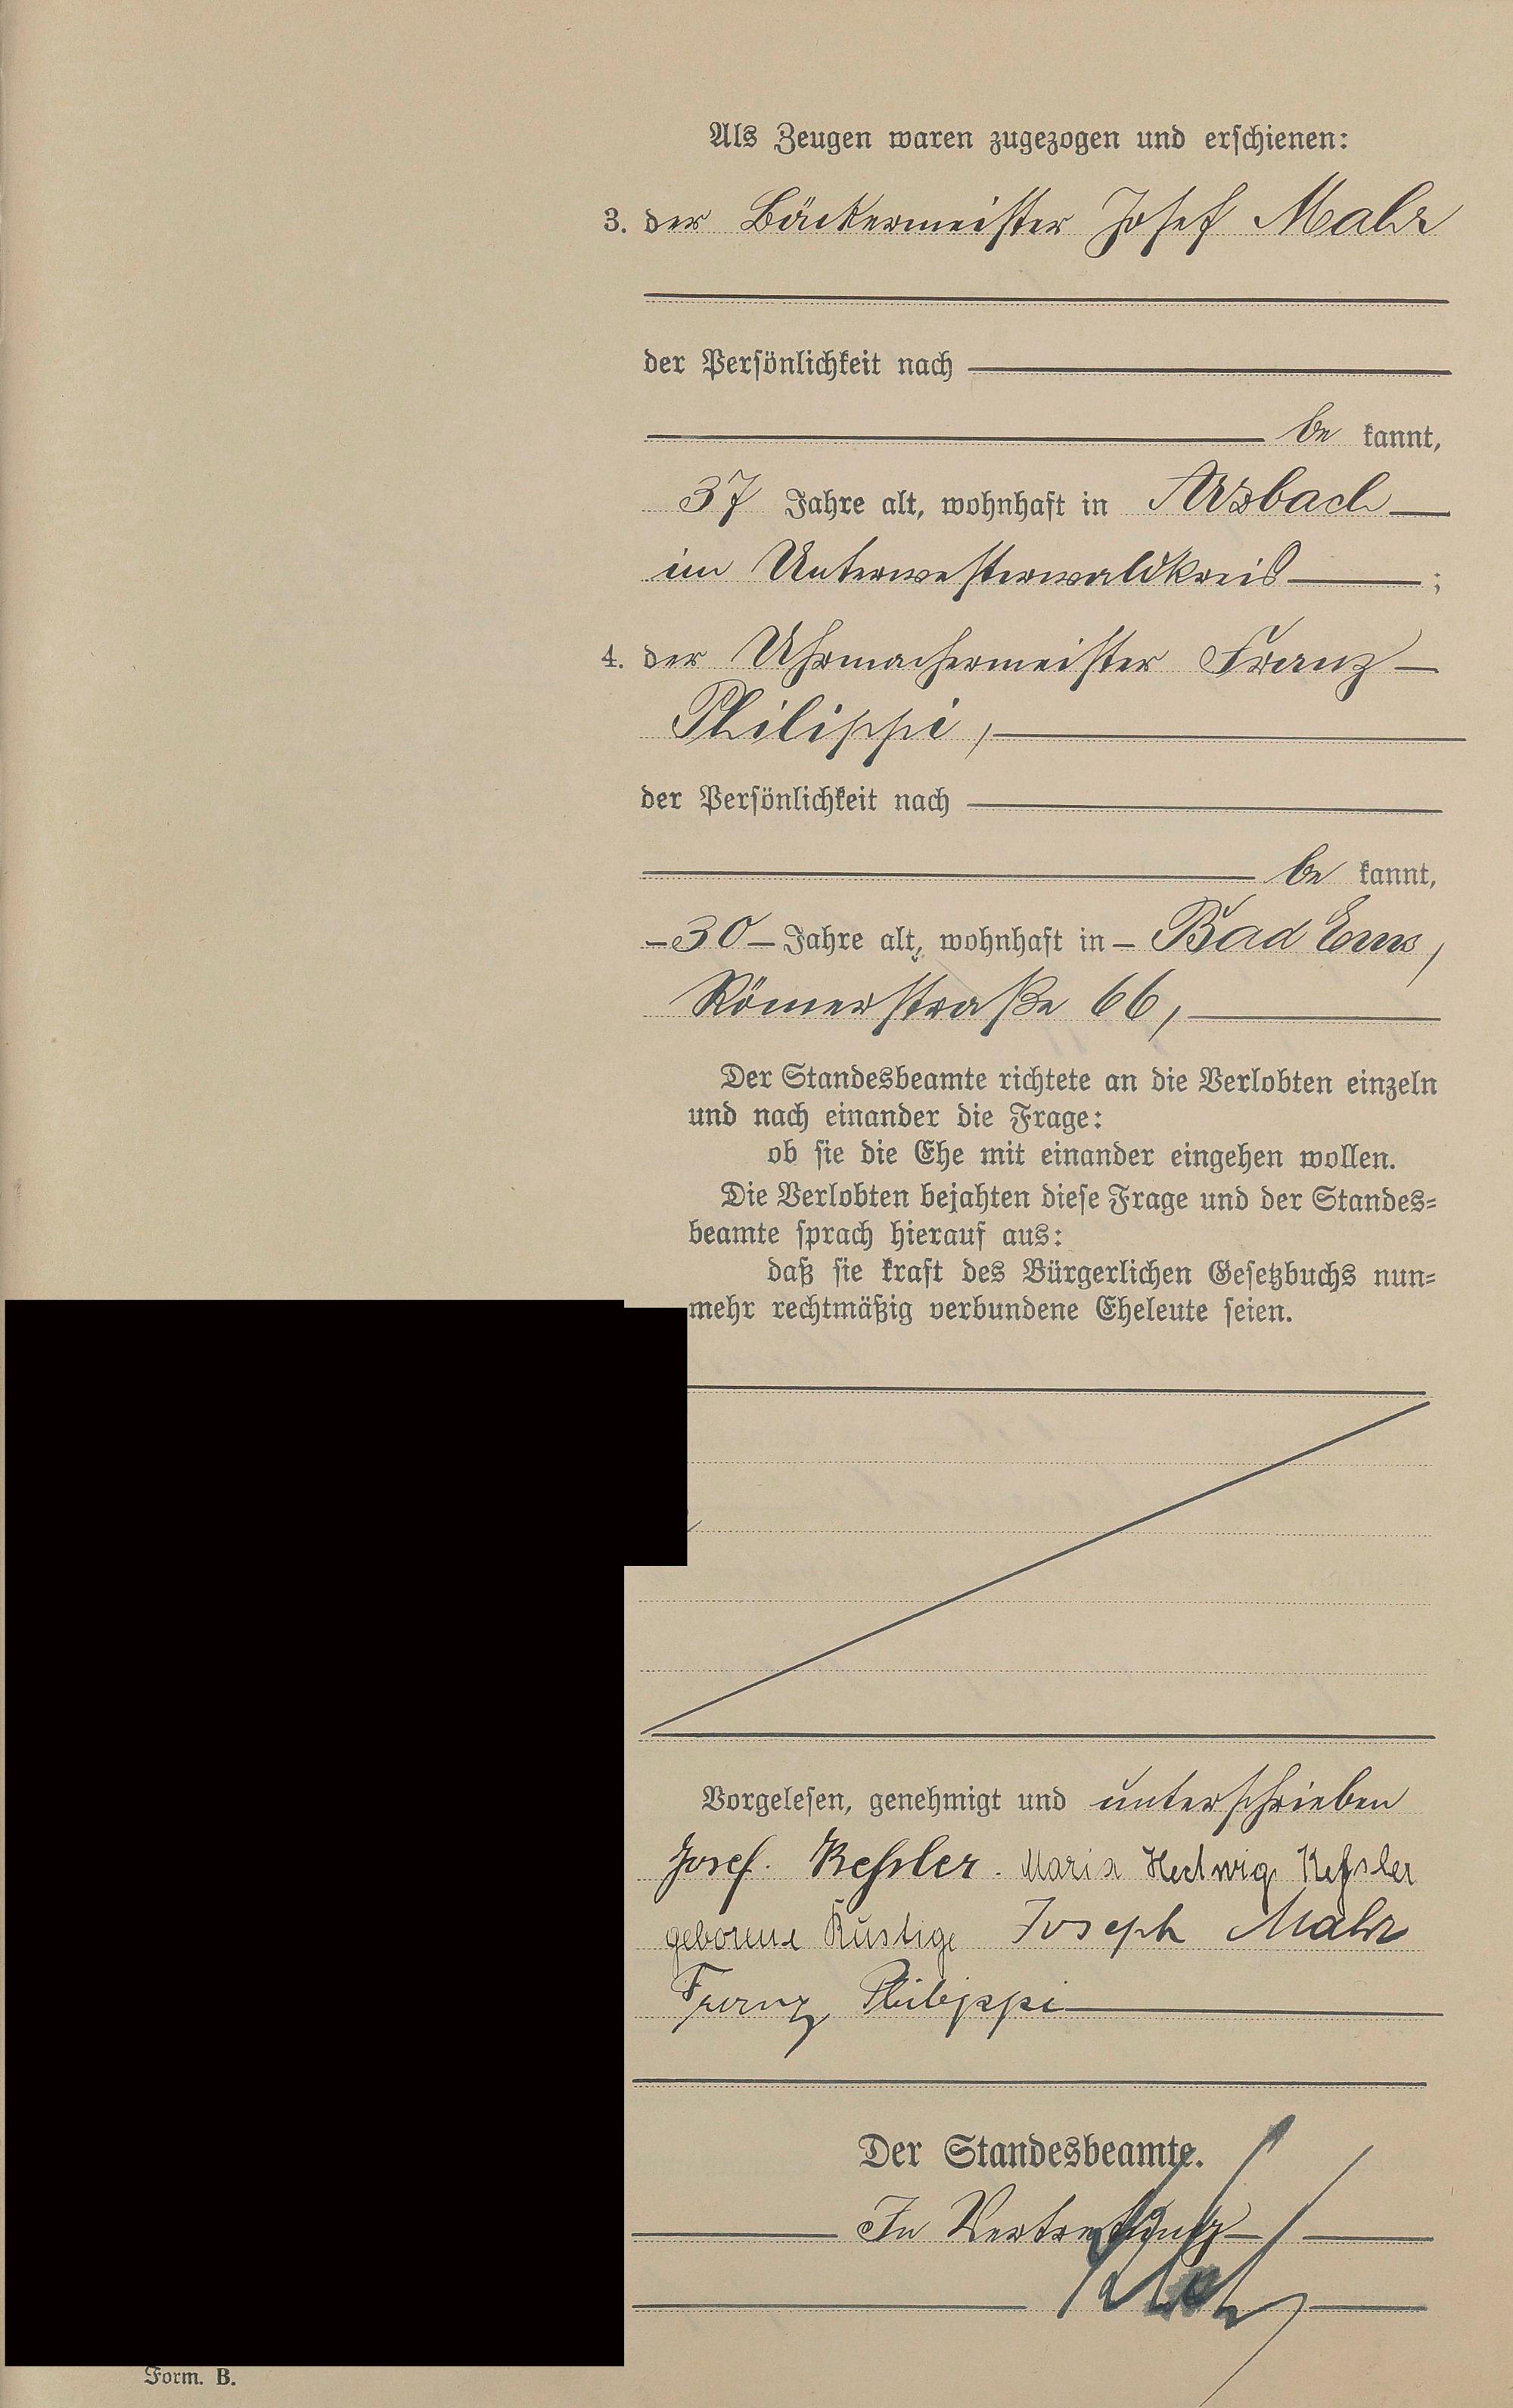 Als Zeugen waren zugezogen und erschienen:
3. der Bäckermeister Josef Mahr
der Persönlichkeit nach
be kannt,
37 Jahre alt, wohnhaft in Arzbach
im Unterwesterwaldkreis ;
4. der Uhrmachermeister Franz
Philippi,
der Persönlichkeit nach
be kannt,
30 Jahre alt, wohnhaft in Bad Ems,
Römerstraße 66,
Der Standesbeamte richtete an die Verlobten einzeln
und nach einander die Frage:
ob sie die Ehe mit einander eingehen wollen.
Die Verlobten bejahten diese Frage und der Standes-
beamte sprach hierauf aus:
daß sie kraft des Bürgerlichen Gesetzbuchs nun-
mehr rechtmäßig verbundene Eheleute seien.
Vorgelesen, genehmigt und unterschrieben
Josef. Kessler. Maria Hedwig Kessler
geborene Rüstige Joseph Mahr
Franz Philippi
Der Standesbeamte.
In Vertretung
Form. B.